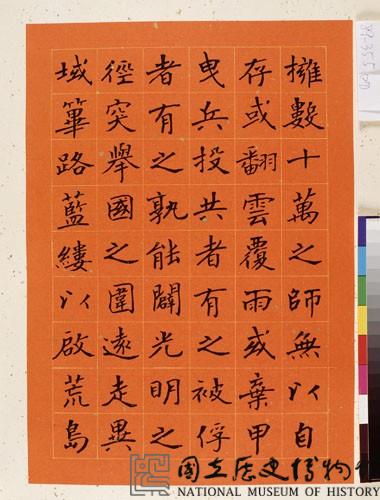 擁數十萬之師無以自
存或翻雲覆雨或棄甲
曳兵投共者有之被俘
者有之孰能闢光明之
徑突舉國之圍遠走異
域篳路藍縷以啟荒島
國立歷史博物館
NATIONAL MUSEUM OF HISTORY